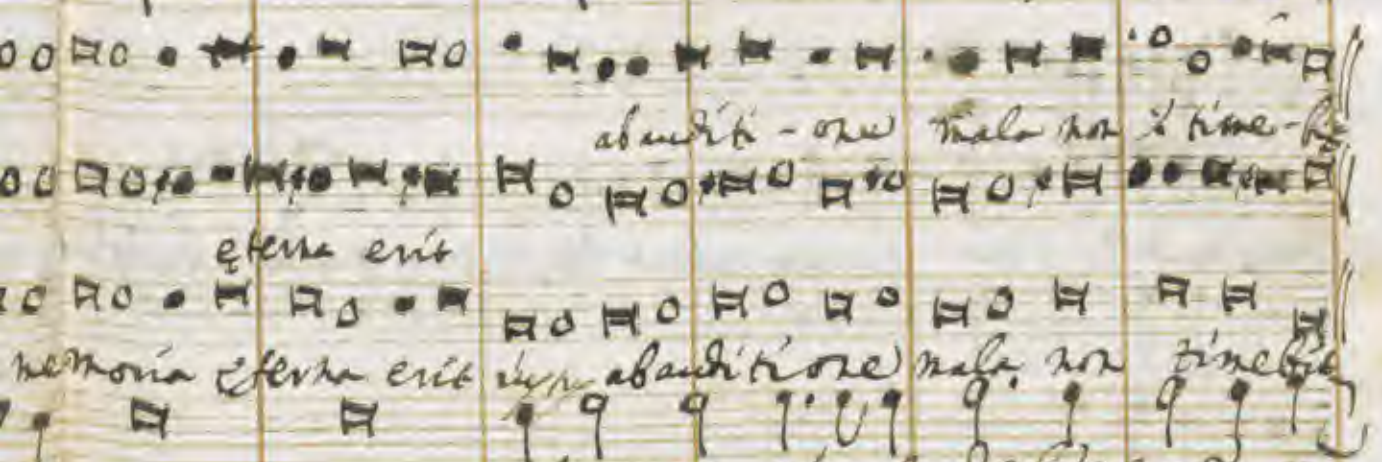 ab auditi - one mala non timebit
ęterna erit
memoria ęterna erit ab auditione mala non timebit